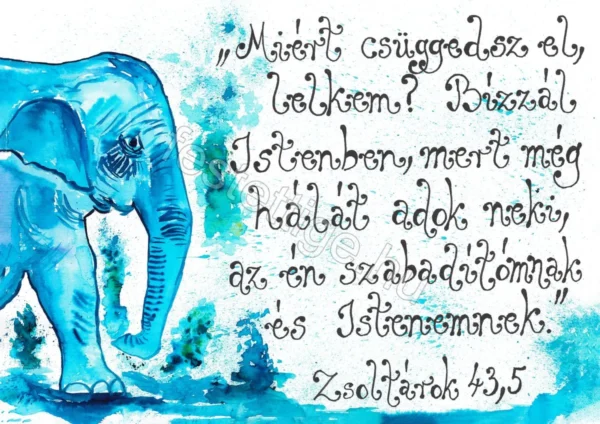 „Miért csüggedsz el,
lelkem? Bízzál
Istenben, mert még
hálát adok neki,
az én szabadítómnak
és Istenemnek."
Zsoltárok 43,5
festettige.hu